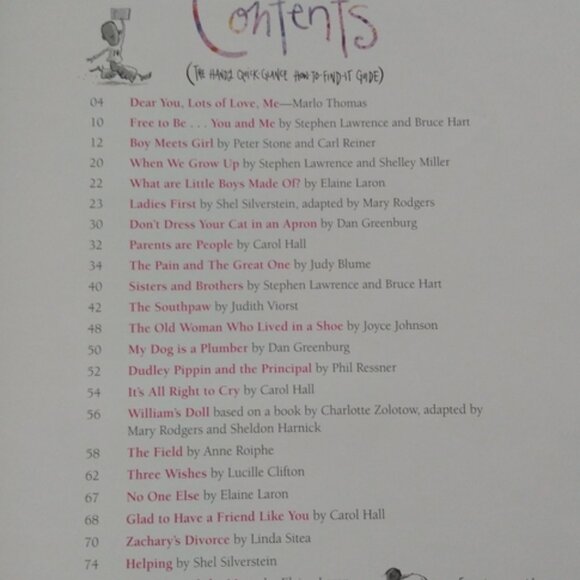 Contents
(THE HANDY QUICK GLANCE HOW-TO-FIND-IT GUIDE)
04 Dear You, Lots of Love, Me—Marlo Thomas
10 Free to Be . . . You and Me by Stephen Lawrence and Bruce Hart
12 Boy Meets Girl by Peter Stone and Carl Reiner
20 When We Grow Up by Stephen Lawrence and Shelley Miller
22 What are Little Boys Made Of? by Elaine Laron
23 Ladies First by Shel Silverstein, adapted by Mary Rodgers
30 Don't Dress Your Cat in an Apron by Dan Greenburg
32 Parents are People by Carol Hall
34 The Pain and The Great One by Judy Blume
40 Sisters and Brothers by Stephen Lawrence and Bruce Hart
42 The Southpaw by Judith Viorst
48 The Old Woman Who Lived in a Shoe by Joyce Johnson
50 My Dog is a Plumber by Dan Greenburg
52 Dudley Pippin and the Principal by Phil Ressner
54 It's All Right to Cry by Carol Hall
56 William's Doll based on a book by Charlotte Zolotow, adapted by
Mary Rodgers and Sheldon Harnick
58 The Field by Anne Roiphe
62 Three Wishes by Lucille Clifton
67 No One Else by Elaine Laron
68 Glad to Have a Friend Like You by Carol Hall
70 Zachary's Divorce by Linda Sitea
74 Helping by Shel Silverstein